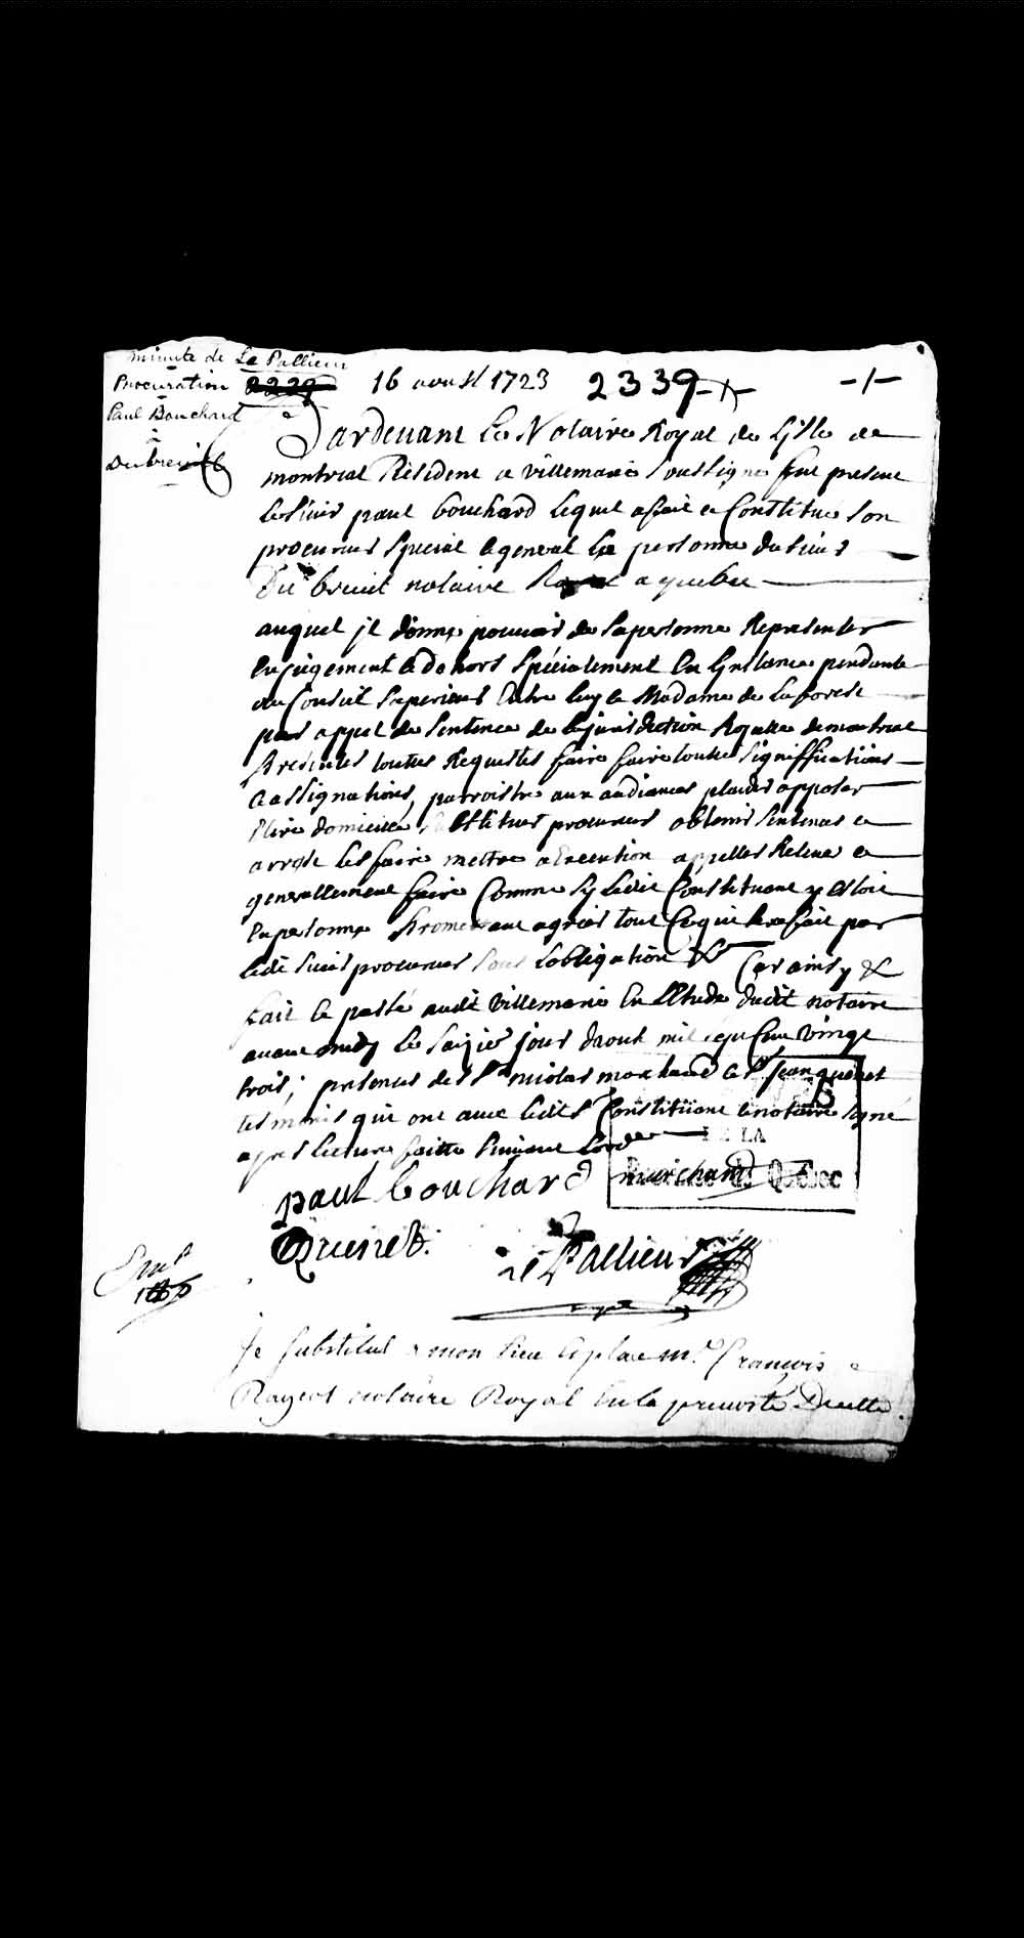 minute de Le Pallieur
Procuration 2339 16 aoust 1723 2339
Paul Bouchard
a
Dubreuil
Pardevant Le Notaire Royal de Lisle de
montreal Resident a villemarie soussigné fut present
le Sieur paul bouchard lequel a fait et Constitué son
procureur special et general la personne du sieur
Du breuil notaire Royal a quebec
auquel jl donne pouvoir de sa personne Representer
En jugement et dehors spécialement En Linstance pendante
au Conseil superieur Entre luy et Madame de Laforest
par appel de sentence de la jurisdiction Royalle de montreal
presenter toutes Requestes faire faire toutes signiffications
et assignations, parroistre aux audiances plaider opposer
Elire domicile procureur obtenir sentences et
arrest les faire mettre a Execution appeller Relever et
generallement faire Comme sy ledit Constituant y estoit
En personne promettant agréer tout Ce qui sera fait par
ledit sieur procureur sous Lobligation &c Car ainsy &c
fait et passé audit villemarie En Lestude dudit notaire
avant midy le saizie jour daoust mil sept Cent vingt
trois; presence des Srs nicolas marchand et Sr jean quenet
tesmoins qui ont avec ledit Constituant et notaire signé
apres lecture faitte suivant Lord
DE LA
paul bouchard marchand Québec
Quenet. Le Pallieur
Je substitue a mon lieu et place me. François
Rageot notaire Royal En la prevosté